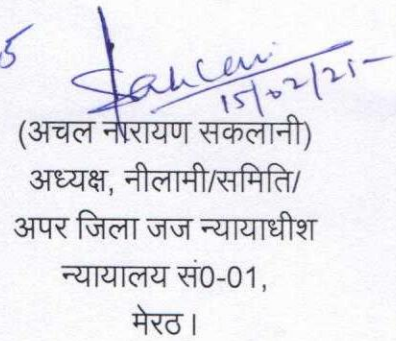 5
15/02/21
(अचल नारायण सकलानी)
अध्यक्ष, नीलामी/समिति/
अपर जिला जज न्यायाधीश
न्यायालय सं0-01,
मेरठ।